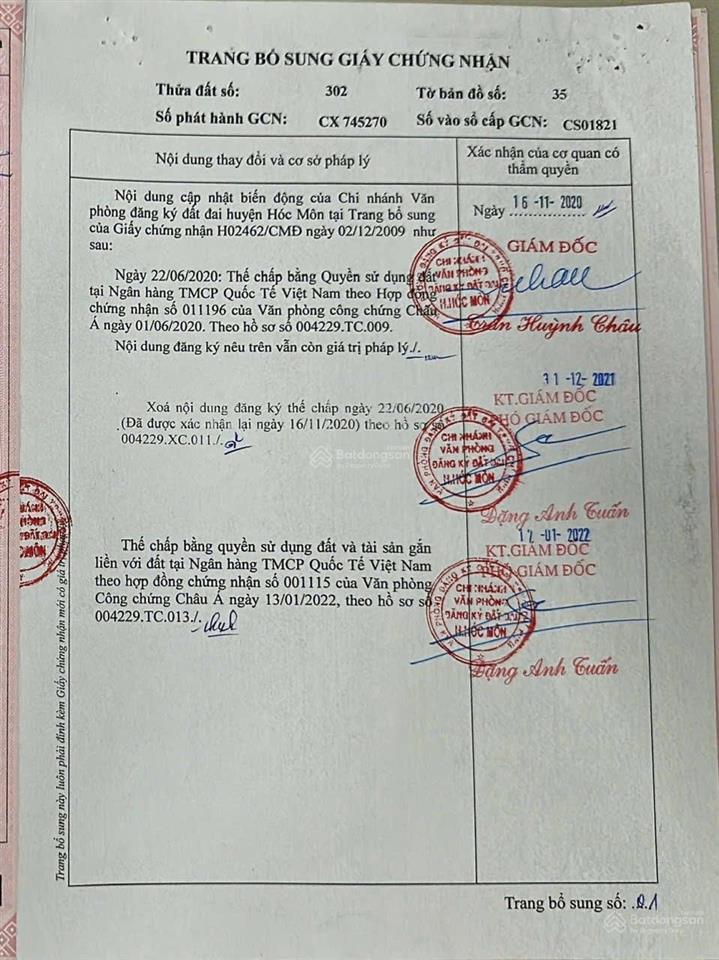 TRANG BỔ SUNG GIẤY CHỨNG NHẬN
Thửa đất số: 302 Tờ bản đồ số: 35
Số phát hành GCN: CX 745270 Số vào sổ cấp GCN: CS01821
Nội dung thay đổi và cơ sở pháp lý
Xác nhận của cơ quan có
thẩm quyền
Nội dung cập nhật biến động của Chi nhánh Văn
phòng đăng ký đất đai huyện Hóc Môn tại Trang bổ sung
của Giấy chứng nhận H02462/CMĐ ngày 02/12/2009 như
sau:
Ngày 22/06/2020: Thế chấp bằng Quyền sử dụng đất
tại Ngân hàng TMCP Quốc Tế Việt Nam theo Hợp đồng
chứng nhận số 011196 của Văn phòng công chứng Châu
Á ngày 01/06/2020. Theo hồ sơ số 004229.TC.009.
Nội dung đăng ký nêu trên vẫn còn giá trị pháp lý./.
Ngày 16-11-2020
GIÁM ĐỐC
CHI NHÁNH
VĂN PHÒNG
ĐĂNG KÝ ĐẤT ĐAI
H.HÓC MÔN
Trần Huỳnh Châu
Xoá nội dung đăng ký thế chấp ngày 22/06/2020
(Đã được xác nhận lại ngày 16/11/2020) theo hồ sơ số
004229.XC.011./.
31-12-2021
KT.GIÁM ĐỐC
PHÓ GIÁM ĐỐC
CHI NHÁNH
VĂN PHÒNG
ĐĂNG KÝ ĐẤT ĐAI
H.HÓC MÔN
Đặng Anh Tuấn
Thế chấp bằng quyền sử dụng đất và tài sản gắn
liền với đất tại Ngân hàng TMCP Quốc Tế Việt Nam
theo hợp đồng chứng nhận số 001115 của Văn phòng
Công chứng Châu Á ngày 13/01/2022, theo hồ sơ số
004229.TC.013./.
-01- 2022
KT.GIÁM ĐỐC
PHÓ GIÁM ĐỐC
CHI NHÁNH
VĂN PHÒNG
ĐĂNG KÝ ĐẤT ĐAI
H.HÓC MÔN
Đặng Anh Tuấn
Trang bổ sung này luôn phải đính kèm Giấy chứng nhận mới có giá trị
Trang bổ sung số: .01
Batdongsan
Batdongsan